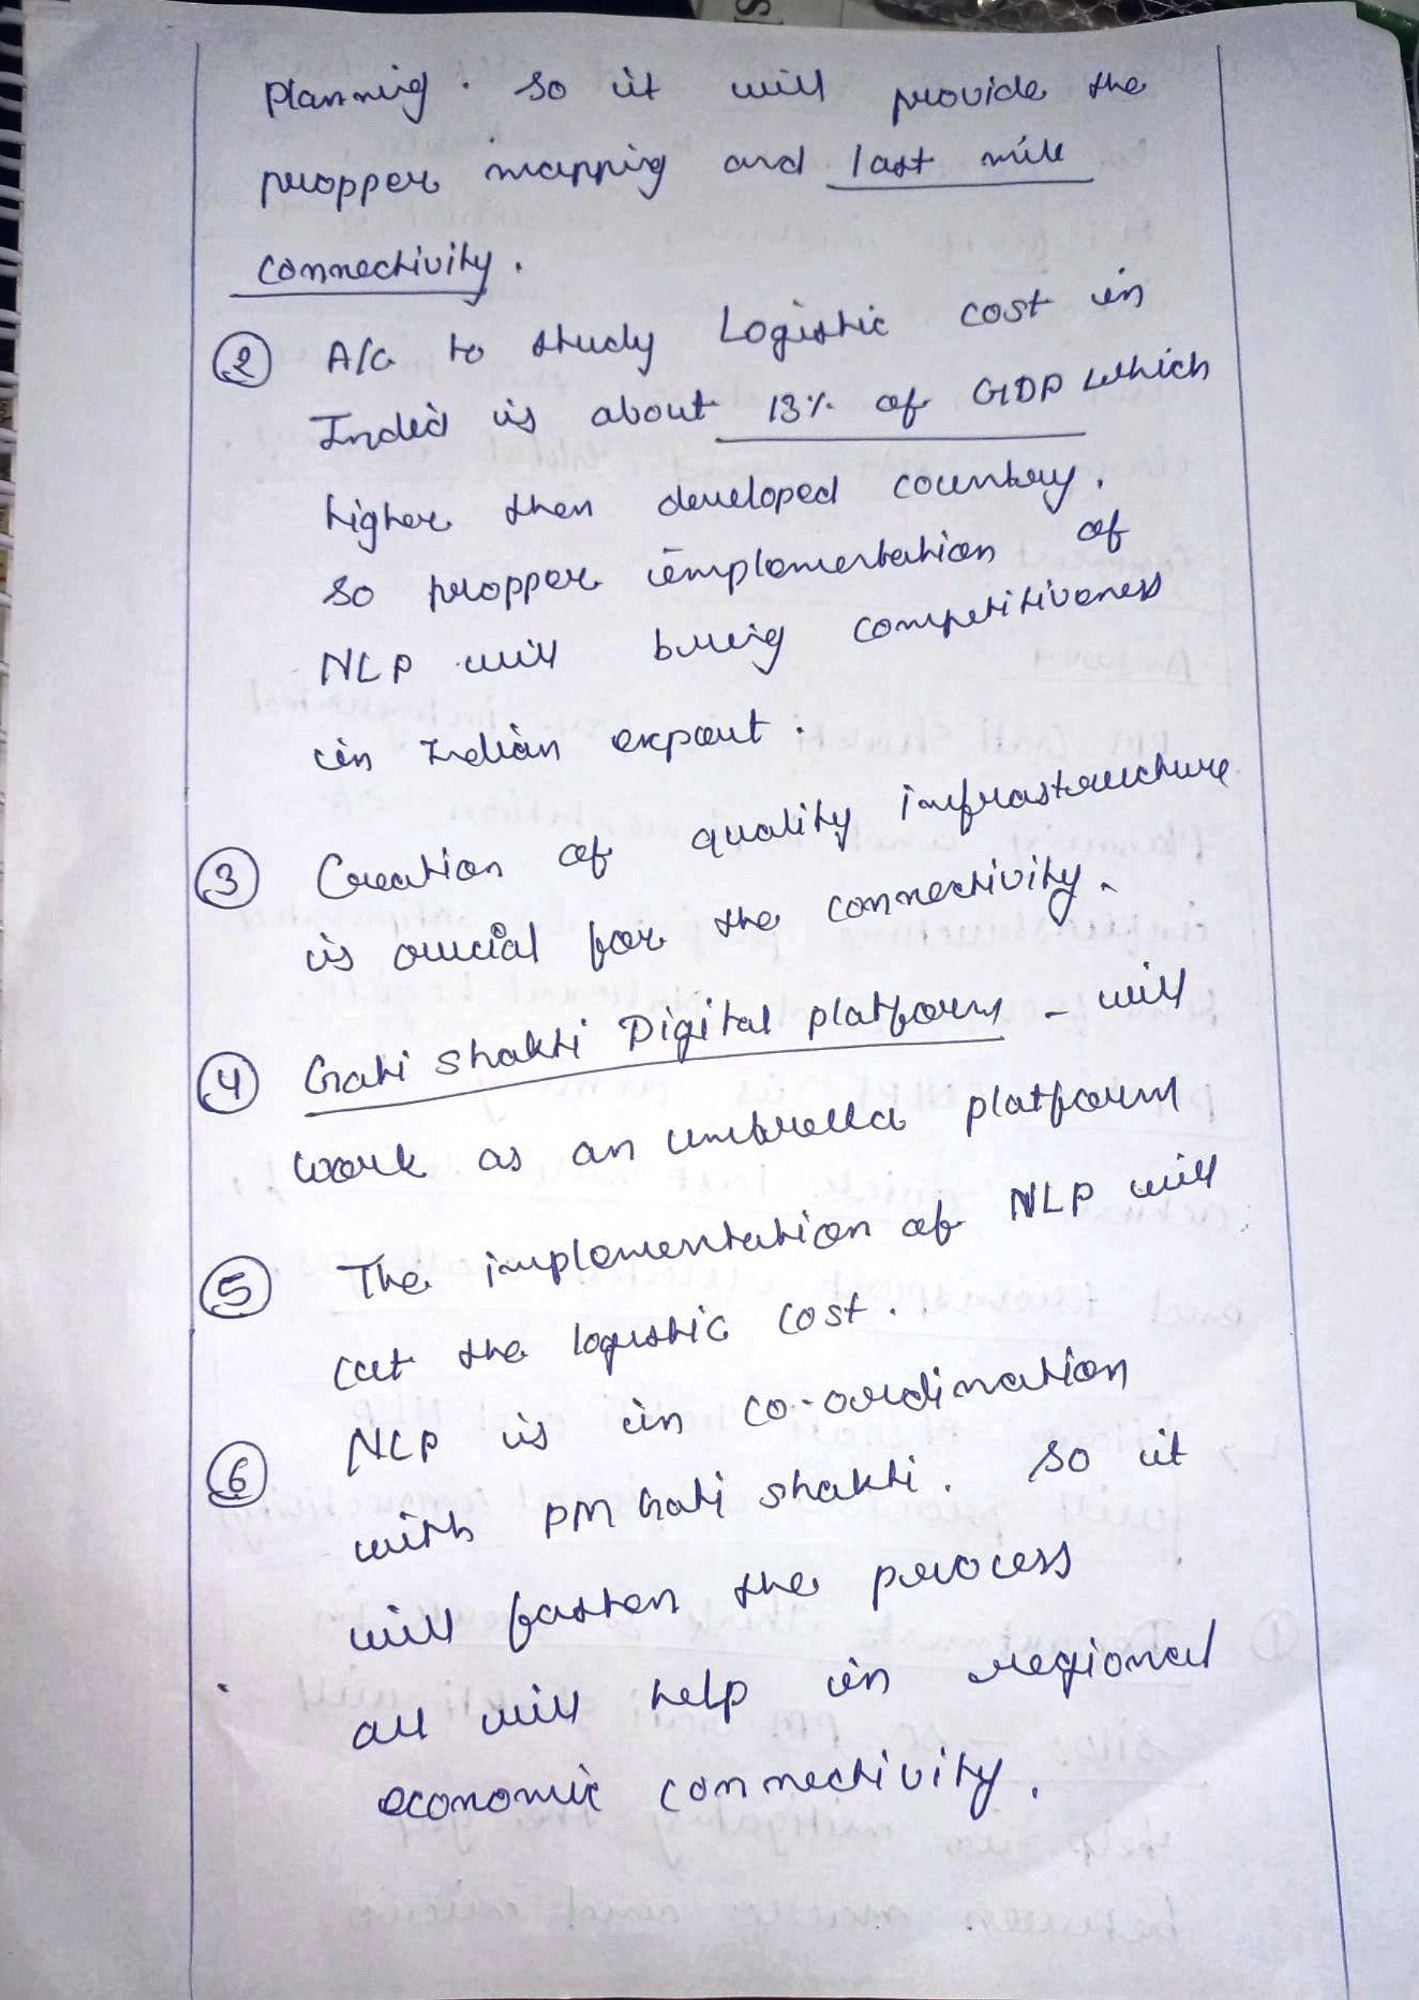 planning. So it will provide the
propper mapping and last mile
connectivity.
② A/c to study Logistic cost in
India is about 13% of GDP which
higher then developed country.
So propper implementation of
NLP will bring competitiveness
in Indian export.
③ Creation of quality infrastructure
is crucial for the connectivity.
④ Gati Shakti Digital platform - will
work as an umbrella platform
⑤ The implementation of NLP will
cut the logistic cost.
⑥ NLP is in co-ordination
with PM Gati Shakti. So it
will fasten the process
all will help in regional
economic connectivity.